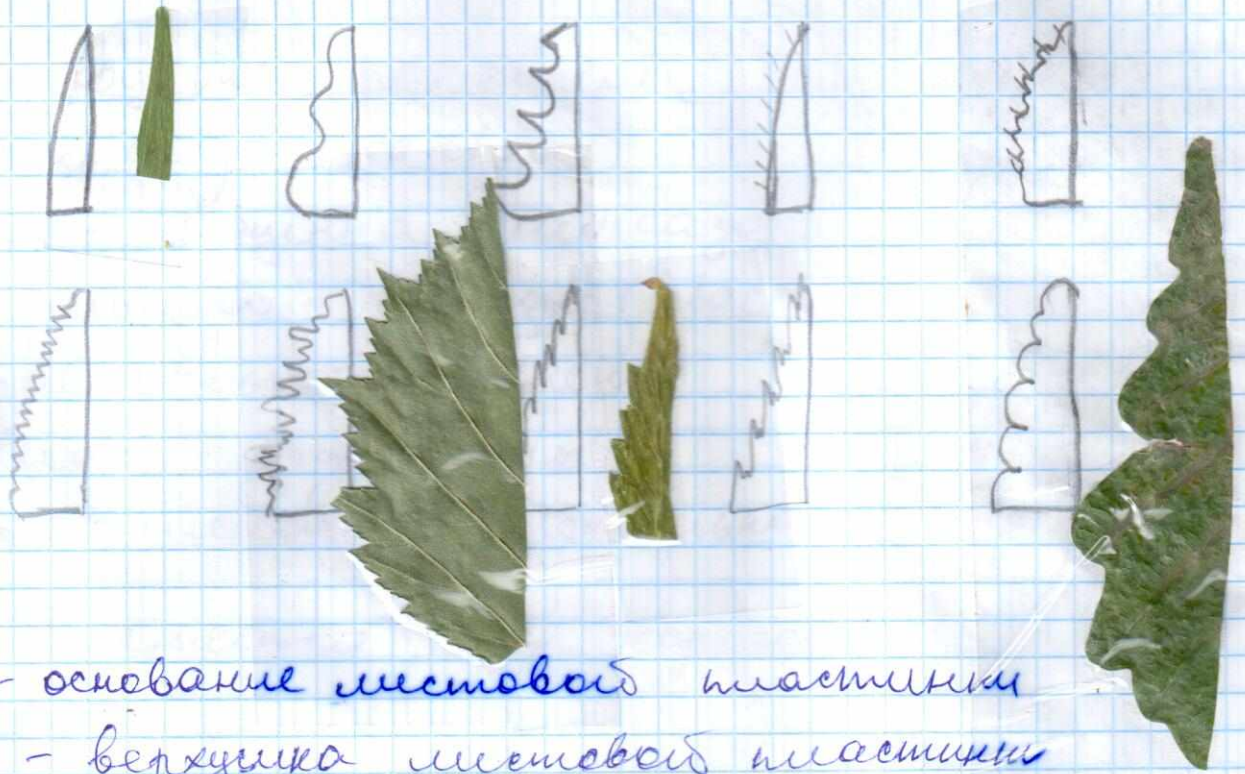 - основание листовой пластинки
- верхушка листовой пластинки